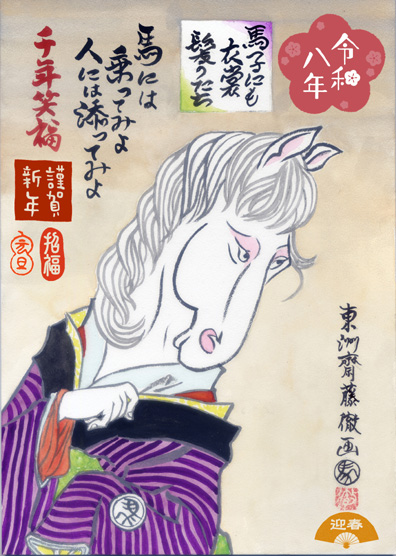 令和
八年
馬子にも
衣裳
髪かたち
馬には
乗ってみよ
人には添ってみよ
千年笑福
謹賀
新年
招福
元旦
東洲齋藤徹画
迎春